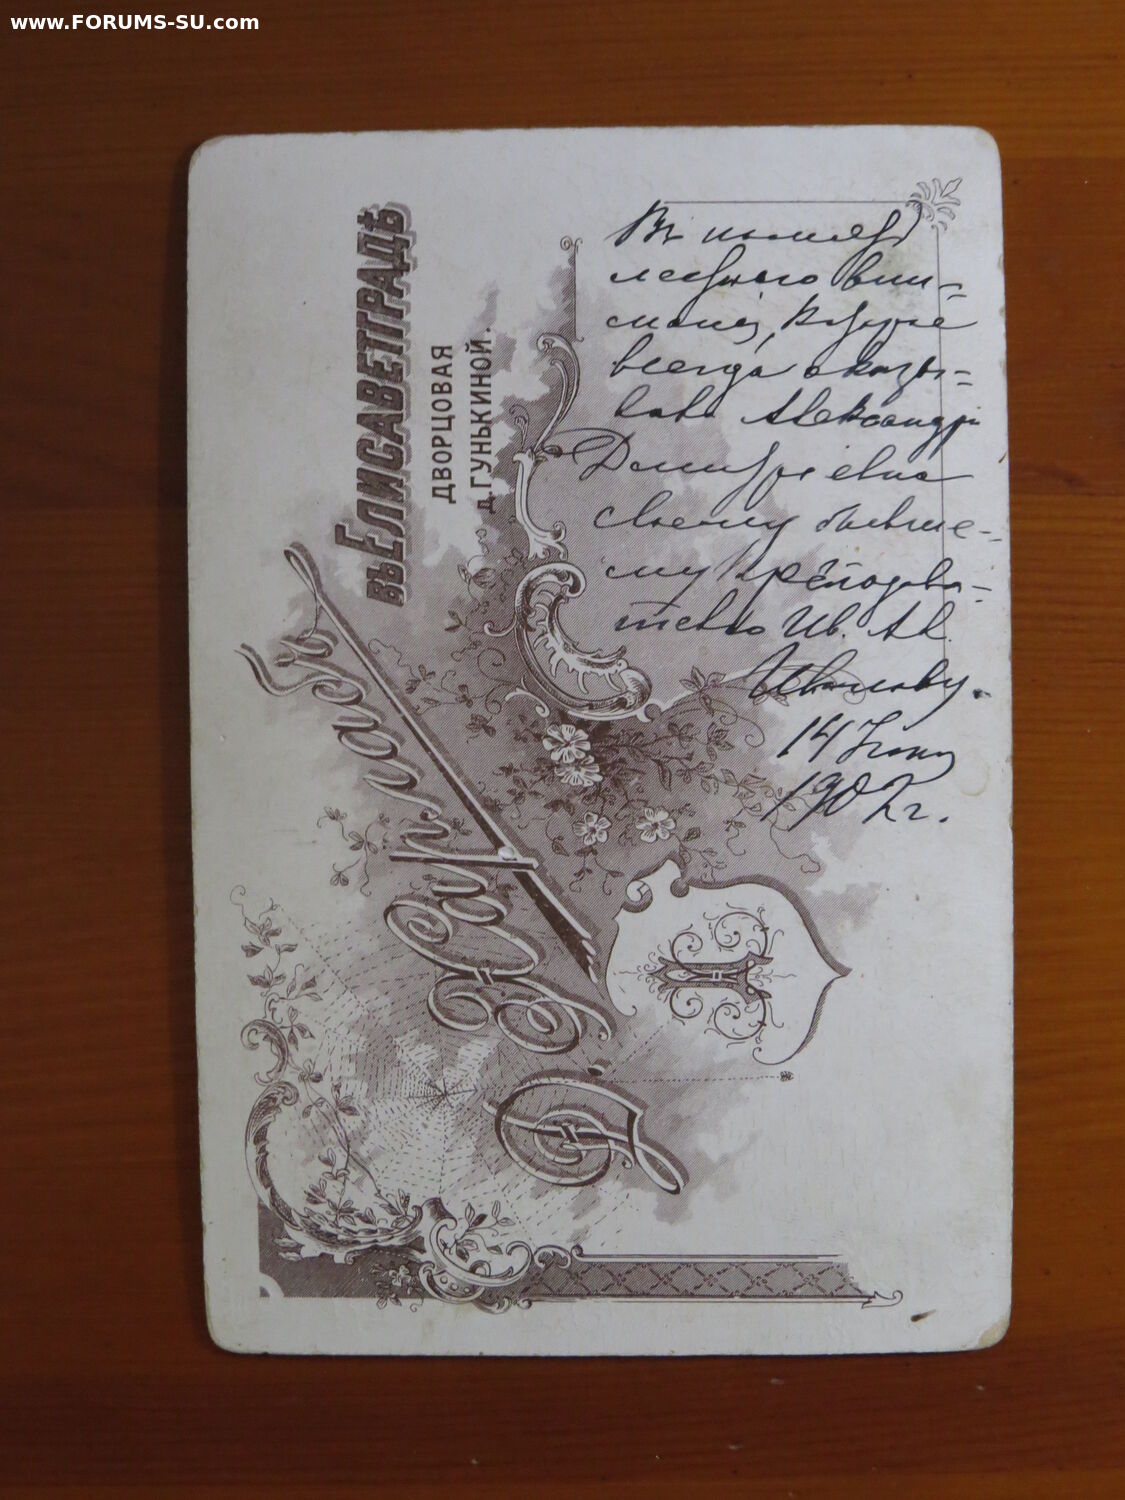 www.FORUMS-SU.com
въ ЕЛИСАВЕТГРАДѢ
ДВОРЦОВАЯ
д. ГУНЬКИНОЙ.
Въ память
лестнаго вни-
манія, которое
всегда оказы-
вала Александра
Дмитріевна
своему бывше-
му
Ив. Ак.
Иванову.
14 Іюня
1902 г.